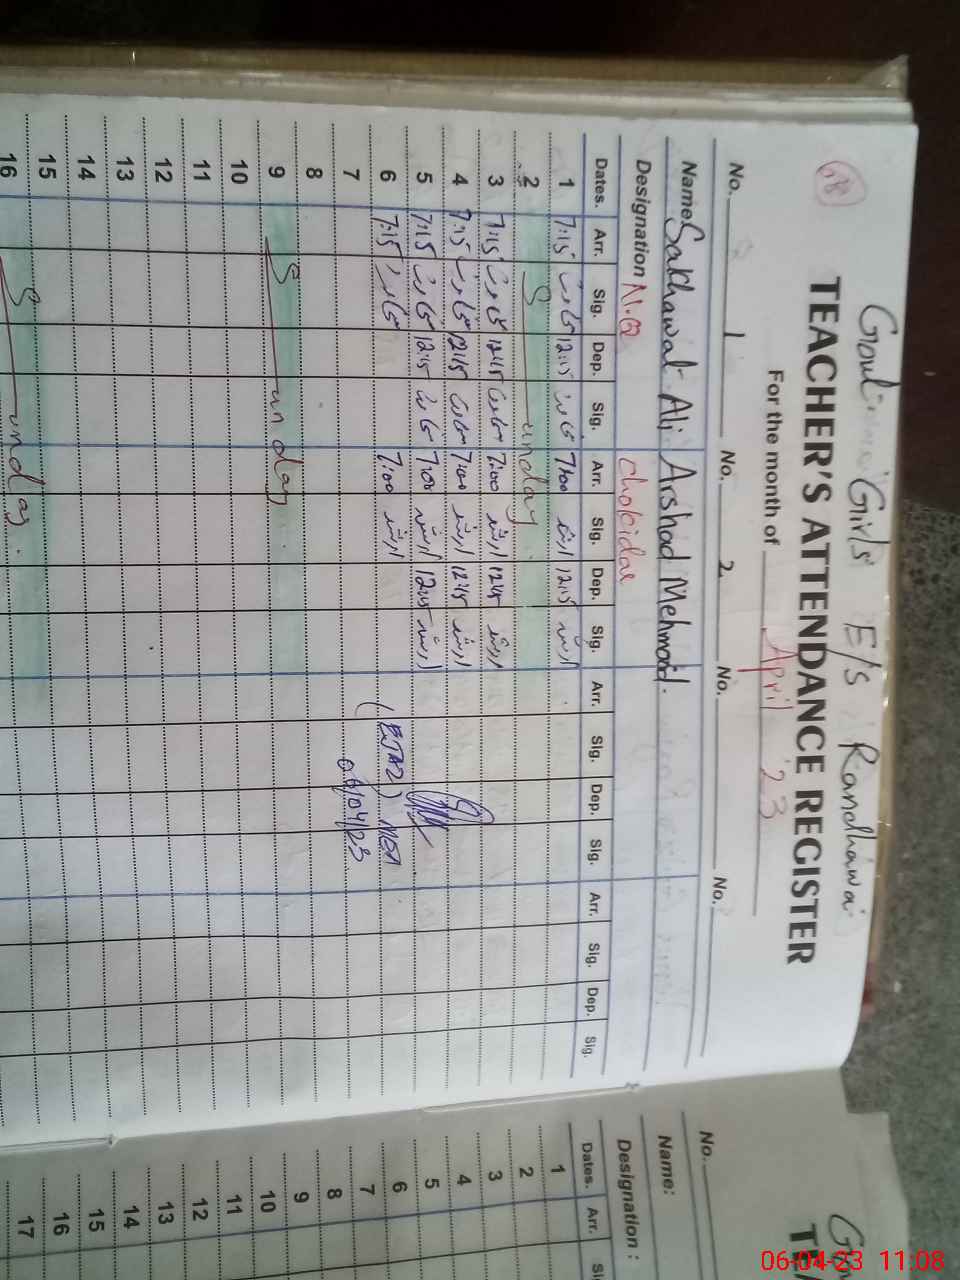 68
Govt. Girls E/S Randhawa
TEACHER'S ATTENDANCE REGISTER
For the month of April '23
No. 1 No. 2 No. No.
Name Sakhawat Ali Arshad Mehmood.
Designation N.Q Chokidar
Dates. Arr. Sig. Dep. Sig. Arr. Sig. Dep. Sig. Arr. Sig. Dep. Sig. Arr. Sig. Dep. Sig.
1 7:15 سخاوت 12:15 سخاوت 7:00 ارشد 12:15 ارشد
2 Sunday
3 7:15 سخاوت 12:45 سخاوت 7:00 ارشد 12:45 ارشد
4 7:15 سخاوت 12:45 سخاوت 7:00 ارشد 12:45 ارشد
5 7:15 سخاوت 12:45 سخاوت 7:00 ارشد 12:45 ارشد
6 7:15 سخاوت 7:00 ارشد
MEA
7 06/04/23
8
9 Sunday
10
11
12
13
14
15
16 Sunday.
No.
Name:
Designation :
Dates. Arr.
1
2
3
4
5
6
7
8
9
10
11
12
13
14
15
16
17
06-04-23 11:08